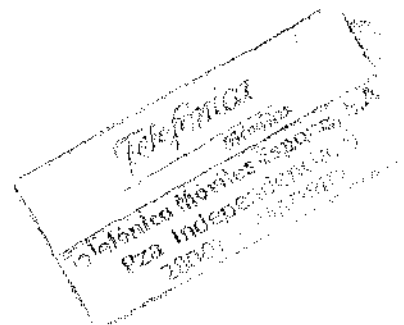 Telefónica
Móviles
Telefónica Móviles España, S.A.
Pza. Independencia,
28001